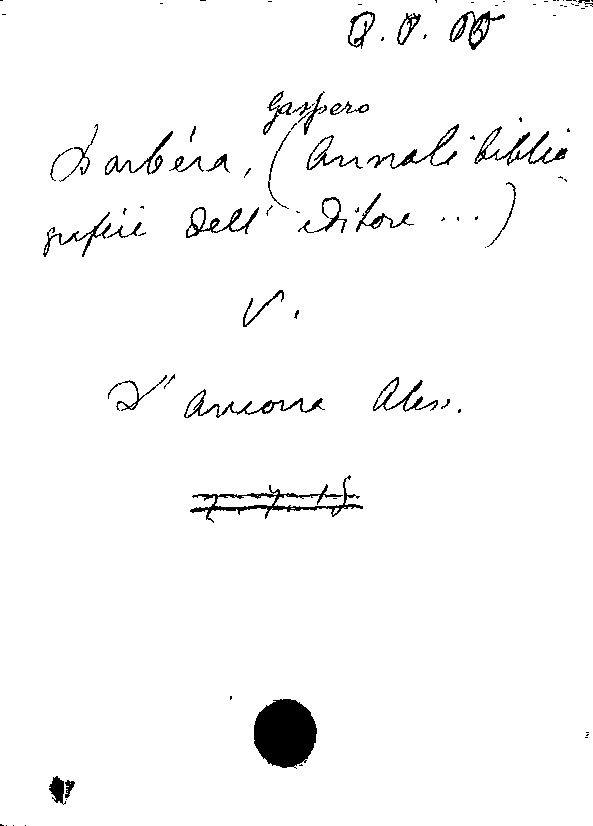 Gaspero
Barbéra, (Annali biblio
grafici dell' editore ...)
V.
D'Ancona Aless.